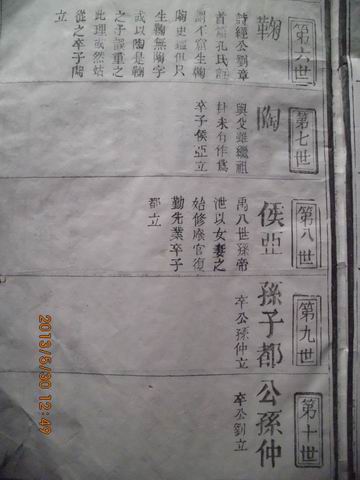 第六世
鞠
詩經公劉章
首篇孔氏
謂不窋生鞠
陶史鑑但只
生鞠無陶字
或以陶是鞠
之子誤重之
此理或然姑
從之卒子陶
立
第七世
陶
與父雖繼祖
封未有作為
卒子侯亞立
第八世
侯亞
禹八世孫帝
泄以女妻之
始修廢官復
勤先業卒子
都立
第九世
孫子都
卒公孫仲立
第十世
公孫仲
卒公劉立
2013/5/30 12:49